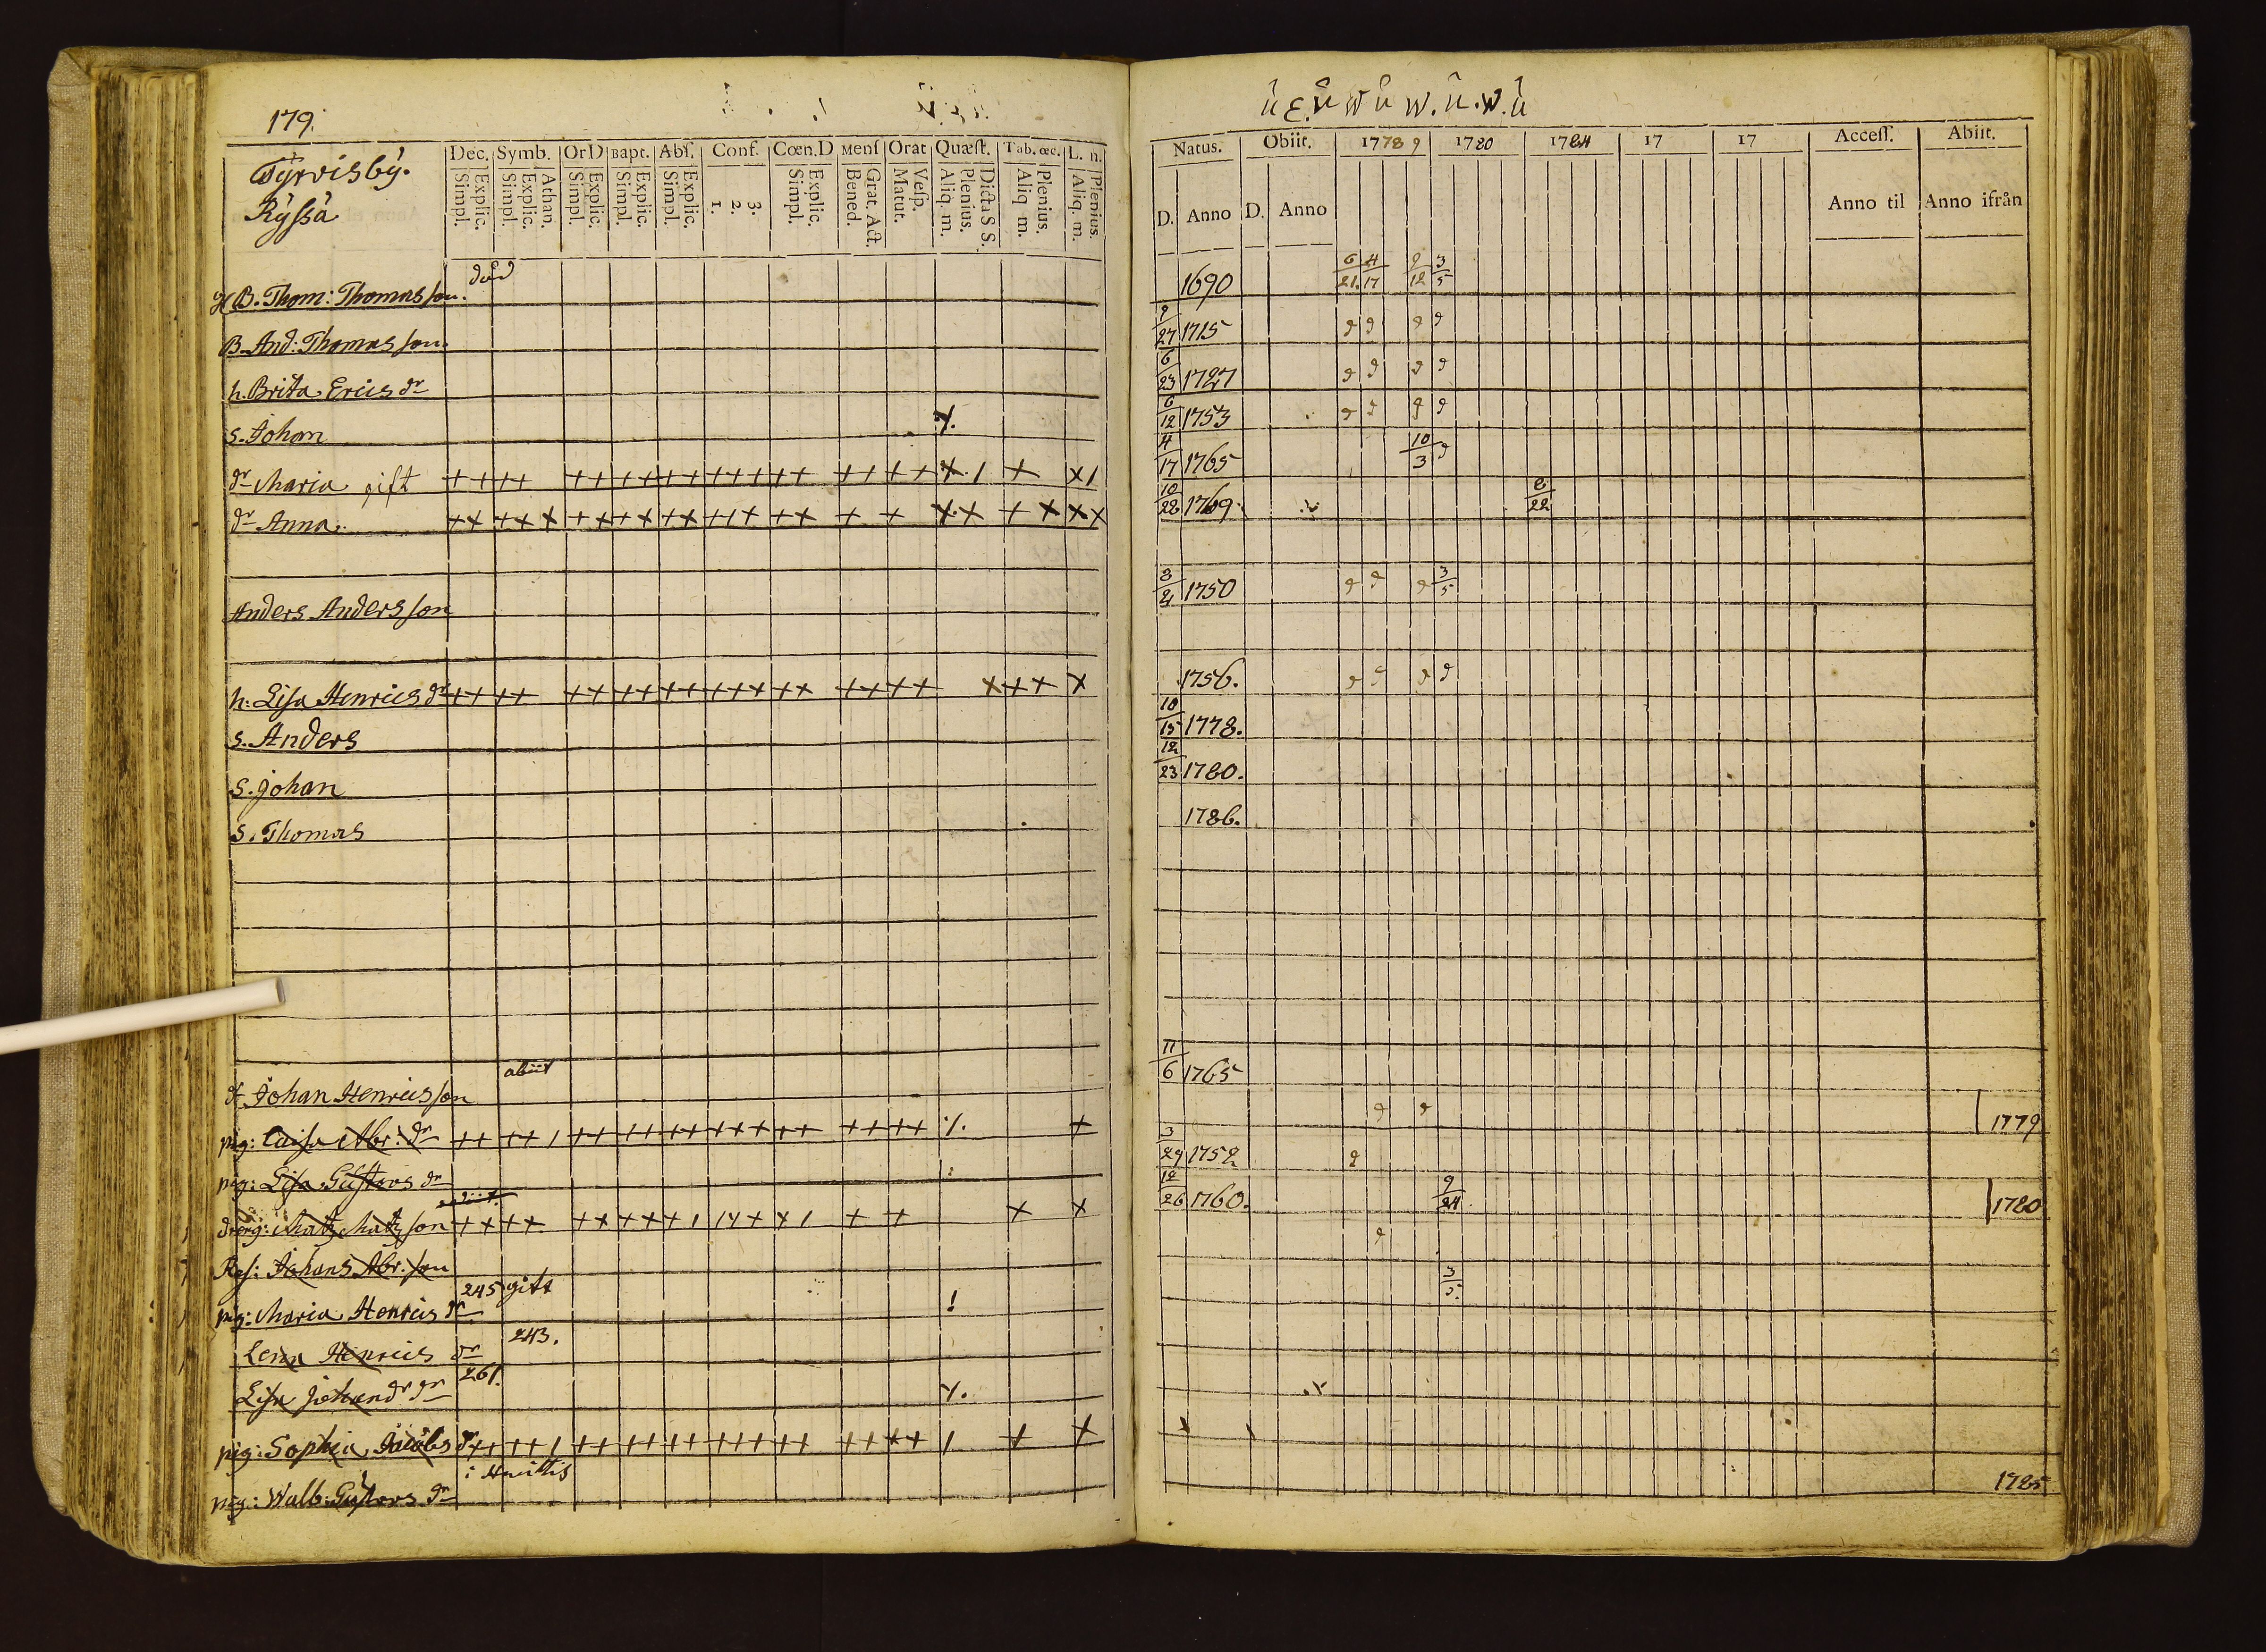 179.
Tÿrvisbÿ.
Rÿssä
Dec. Symb. OrD Bapt. Abſ. Conf. Cœn.D Menſ Orat Quæſt. Tab. œc. L. n.
Explic. Simpl. Athan. Explic. Simpl. Explic. Simpl. Explic. Simpl. Explic. Simpl. 3. 2. 1. Explic. Simpl. Grat. Act. Bened. Veſp. Matut. Dicta S S. Plenius. Aliq. m. Plenius. Aliq m. Plenius. Aliq. m.
död
B. Thom: Thomasson.
B. And: Thomasson.
h. Brita Erics dr
s. Johan
dr Maria gift
dr Anna.
Anders Andersson
h: Lisa Henrics dr
s. Anders
s. Johan
s. Thomas
abiit
Johan Henricsson
pig: Caisa Abr: dr
pig: Lisa Gustavs dr
dreng: Matz Matzson
Johans Abr: son
245 gift
pig: Maria Henrics dr
243.
Lena Henrics dr
261.
Lisa Johans dr
pig: Sophia Jacobs dr
i
pig: Walb: Gustavs dr
Natus. Obiit. 1778 9 1780 1784 17 17 Acceſſ. Abiit.
D. Anno D. Anno Anno til Anno ifrån
1690 6/21. 4/17 9/12 3/5
9/27 1715
6/23 1727
6/12 1753
4/17 1765 10/3
10/28 1769. 8/22
8/21 1750 3/5
1756.
10/15 1778.
12/23 1780.
1786.
11/6 1765
1779
3/29 1752
12/26 1760. 9/24 1780
3/5.
1785